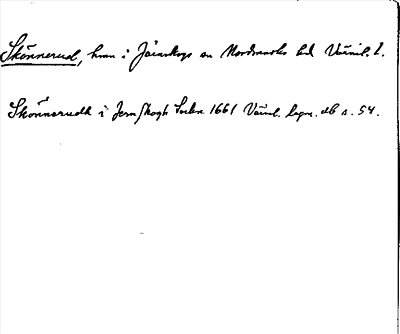 Skönnerud, hmn i Järnskogs sn Nordmarks hd Värml. l.
Skönnerudh i Jernskogh Sochn 1661 Värml. lagm. db s. 54.